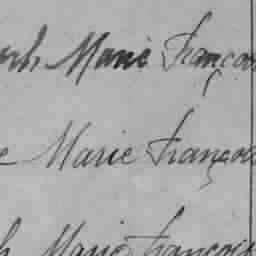 Marie François
Marie François
Marie François